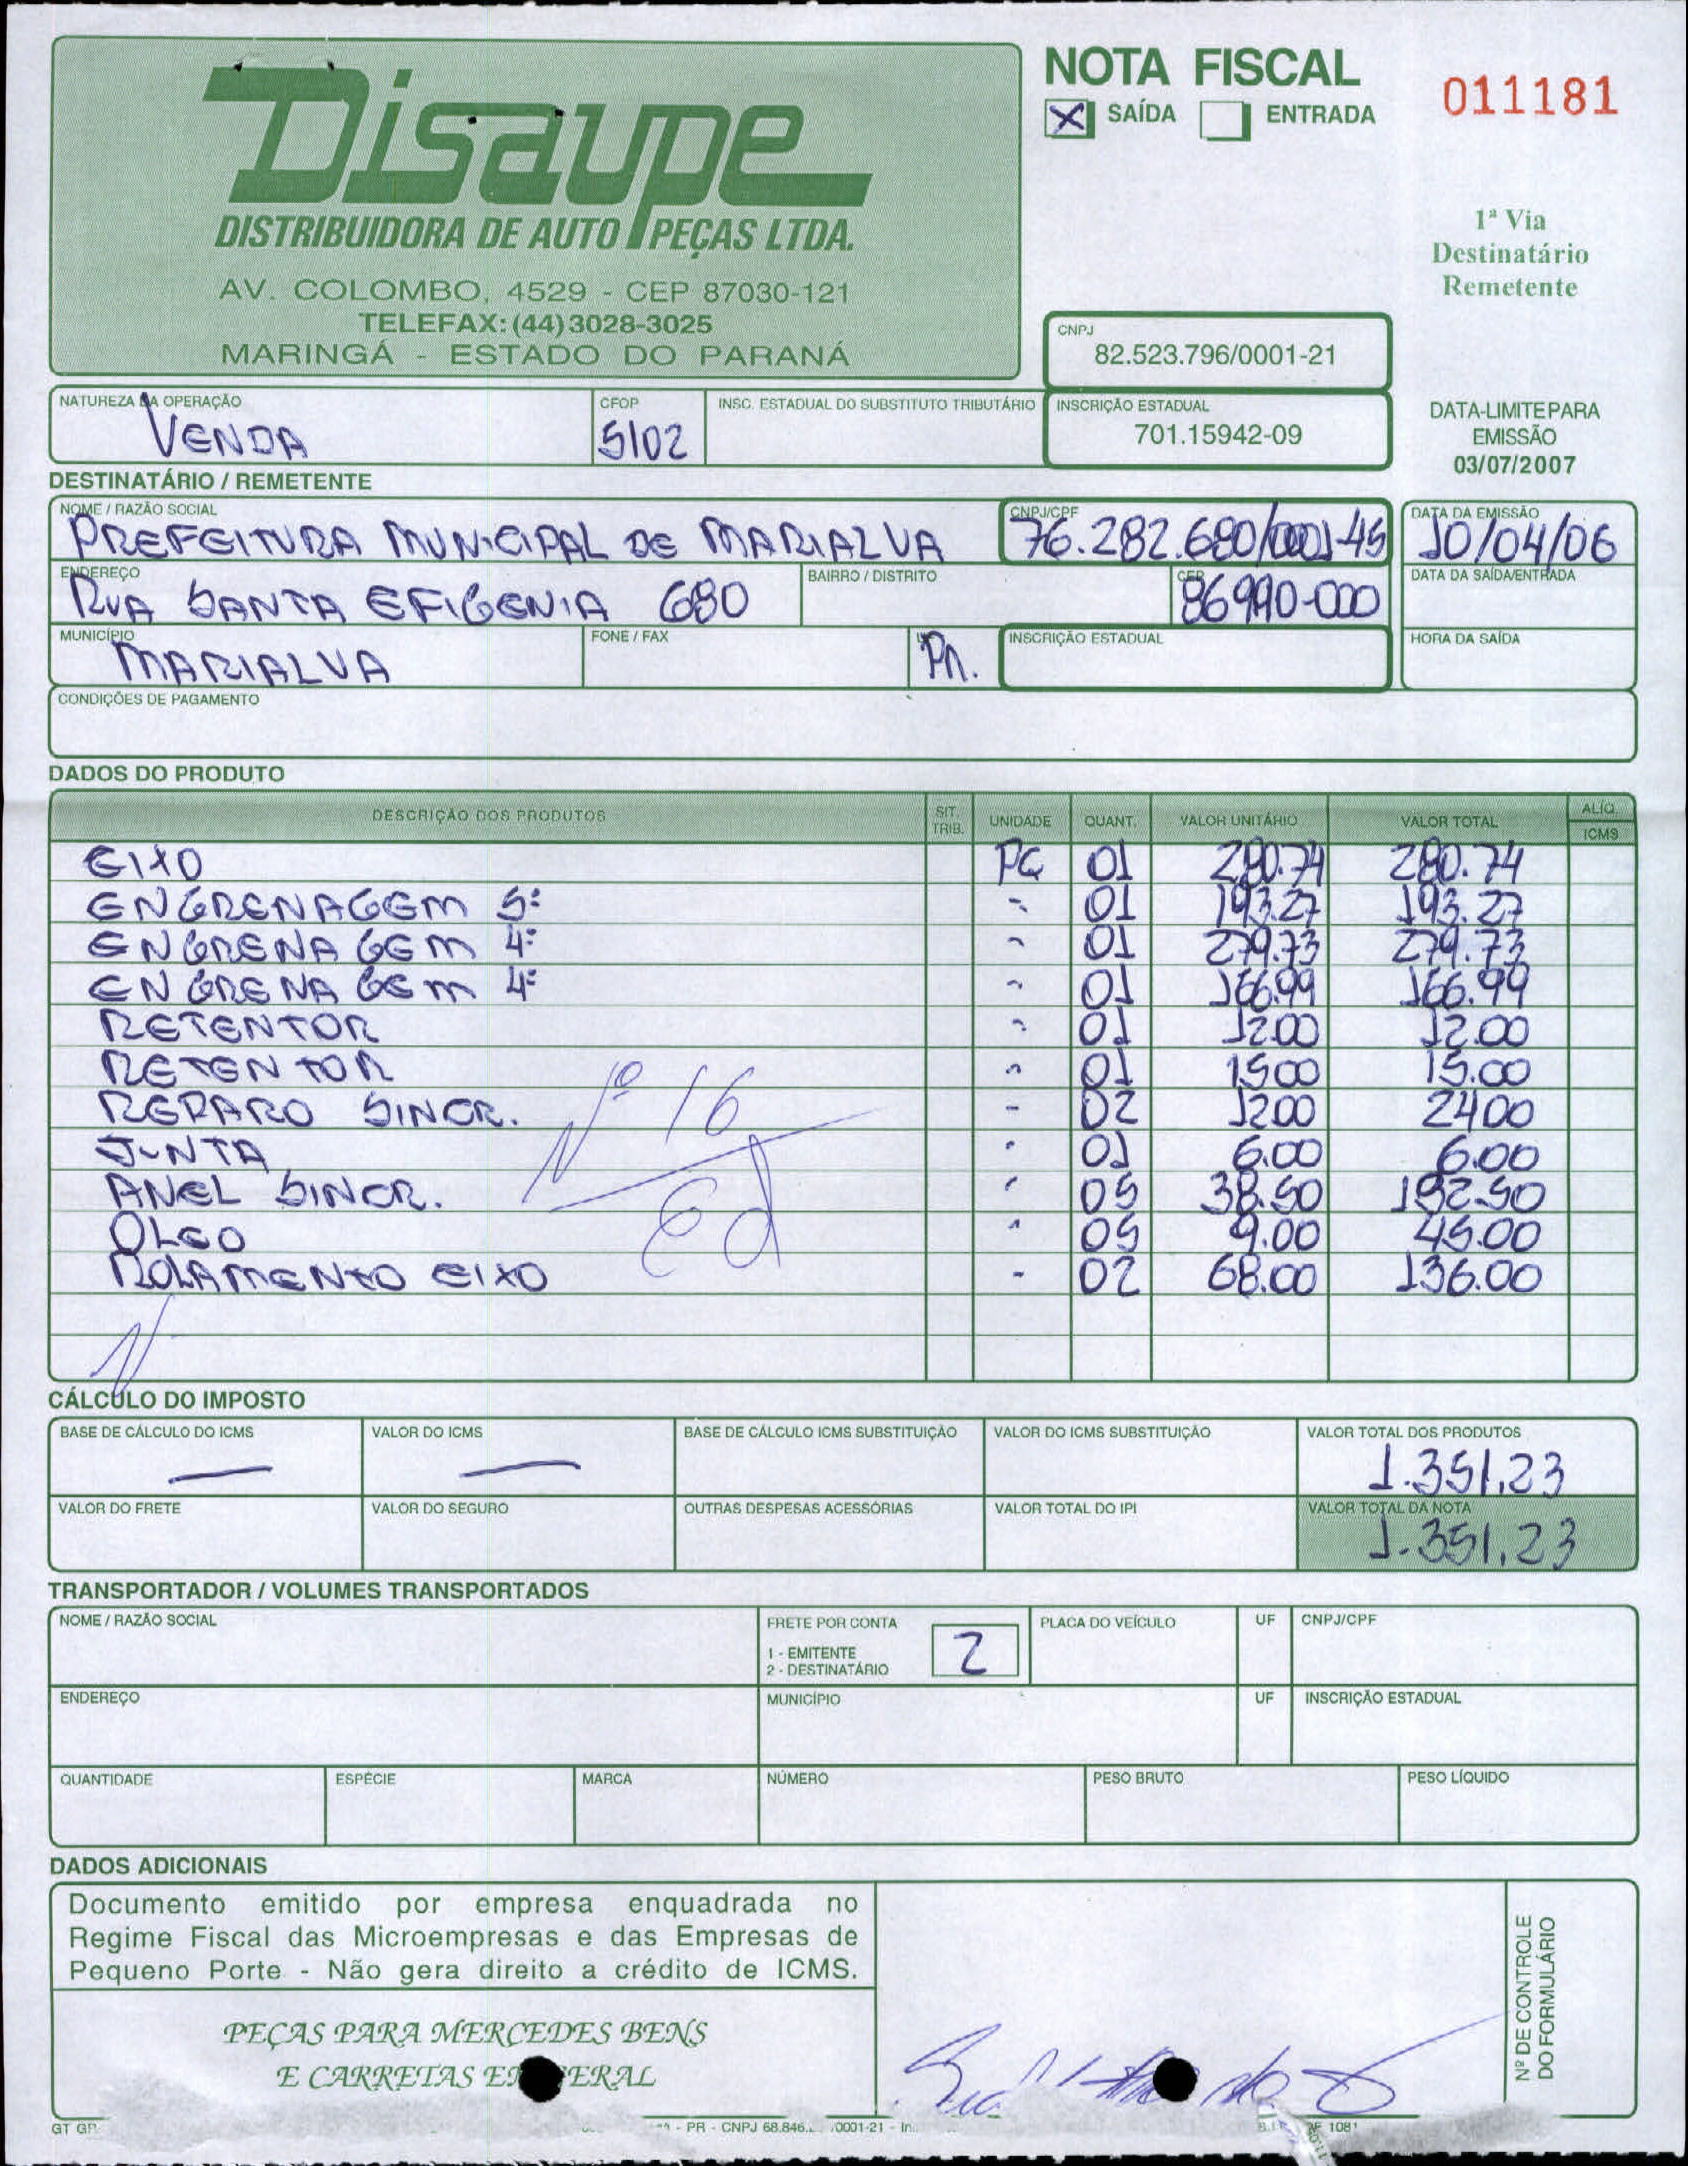 Disaupe
DISTRIBUIDORA DE AUTO PEÇAS LTDA.
AV. COLOMBO, 4529 - CEP 87030-121
TELEFAX: (44) 3028-3025
MARINGÁ - ESTADO DO PARANÁ
NOTA FISCAL
X SAÍDA ENTRADA
011181
1ª Via
Destinatário
Remetente
CNPJ
82.523.796/0001-21
NATUREZA DA OPERAÇÃO CFOP INSC. ESTADUAL DO SUBSTITUTO TRIBUTÁRIO INSCRIÇÃO ESTADUAL
VENDA 5102 701.15942-09
DATA-LIMITE PARA
EMISSÃO
03/07/2007
DESTINATÁRIO / REMETENTE
NOME / RAZÃO SOCIAL CNPJ/CPF DATA DA EMISSÃO
PREFEITURA MUNICIPAL DE MARIALVA 76.282.680/0001-45 10/04/06
ENDEREÇO BAIRRO / DISTRITO CEP DATA DA SAÍDA/ENTRADA
RUA SANTA EFIGENIA 680 86990-000
MUNICÍPIO FONE / FAX INSCRIÇÃO ESTADUAL HORA DA SAÍDA
MARIALVA PR.
CONDIÇÕES DE PAGAMENTO
DADOS DO PRODUTO
DESCRIÇÃO DOS PRODUTOS SIT. TRIB. UNIDADE QUANT. VALOR UNITÁRIO VALOR TOTAL ALÍQ. ICMS
EIXO PÇ 01 280.74 280.74
ENGRENAGEM 5ª " 01 193.27 193.27
ENGRENAGEM 4ª " 01 279.73 279.73
ENGRENAGEM 4ª " 01 166.99 166.99
RETENTOR " 01 12.00 12.00
RETENTOR " 01 15.00 15.00
REPARO SINCR. " 02 12.00 24.00
JUNTA " 01 6.00 6.00
ANEL SINCR. " 05 38.50 192.50
OLEO " 05 9.00 45.00
ROLAMENTO EIXO " 02 68.00 136.00
Nº 16
CÁLCULO DO IMPOSTO
BASE DE CÁLCULO DO ICMS VALOR DO ICMS BASE DE CÁLCULO ICMS SUBSTITUIÇÃO VALOR DO ICMS SUBSTITUIÇÃO VALOR TOTAL DOS PRODUTOS
1.351,23
VALOR DO FRETE VALOR DO SEGURO OUTRAS DESPESAS ACESSÓRIAS VALOR TOTAL DO IPI VALOR TOTAL DA NOTA
1.351,23
TRANSPORTADOR / VOLUMES TRANSPORTADOS
NOME / RAZÃO SOCIAL FRETE POR CONTA PLACA DO VEÍCULO UF CNPJ/CPF
1 - EMITENTE
2 - DESTINATÁRIO 2
ENDEREÇO MUNICÍPIO UF INSCRIÇÃO ESTADUAL
QUANTIDADE ESPÉCIE MARCA NÚMERO PESO BRUTO PESO LÍQUIDO
DADOS ADICIONAIS
Documento emitido por empresa enquadrada no
Regime Fiscal das Microempresas e das Empresas de
Pequeno Porte - Não gera direito a crédito de ICMS.
PEÇAS PARA MERCEDES BENS
E CARRETAS
Nº DE CONTROLE
DO FORMULÁRIO
- PR - CNPJ 68.846. /0001-21 -